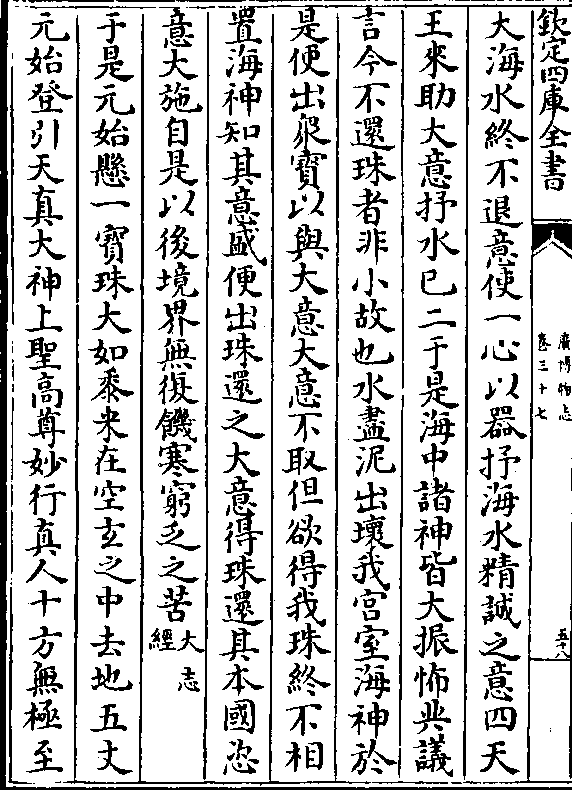 欽定四庫全書
廣博物志
卷三十七
五十八
大海水終不退意使一心以器抒海水精誠之意四天
王來助大意抒水已二于是海中諸神皆大振怖共議
言今不還珠者非小故也水盡泥出壞我宮室海神於
是便出衆寳以與大意大意不取但欲得我珠終不相
置海神知其意盛便出珠還之大意得珠還其本國恣
意大施自是以後境界無復饑寒窮乏之苦大志經
于是元始懸一寳珠大如黍米在空玄之中去地五丈
元始登引天真大神上聖高尊妙行真人十方無極至